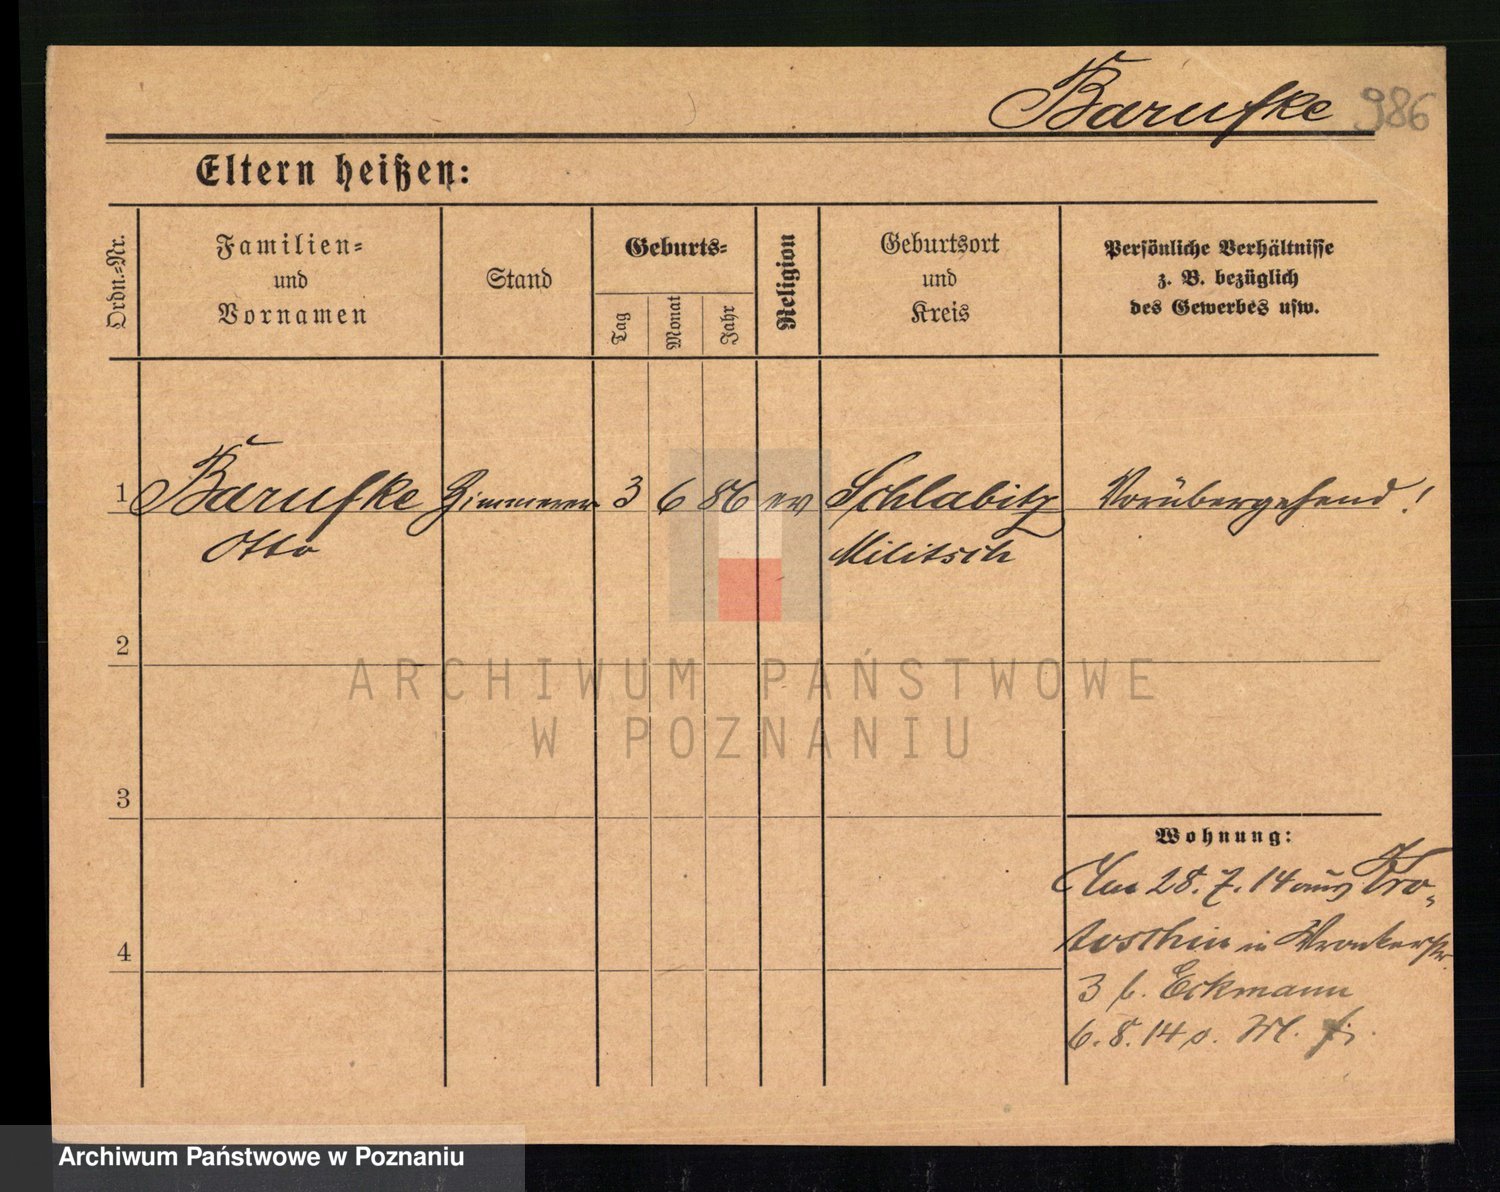 Barufke 986
Eltern heißen:
Ordn.-Nr.
Familien-
und
Vornamen
Stand
Geburts-
Tag
Monat
Jahr
Religion
Geburtsort
und
Kreis
Persönliche Verhältnisse
z. B. bezüglich
des Gewerbes usw.
1 Barufke Zimmerer 3 6 86 ev Schlabitz Vorübergehend!
Otto Militsch
2
ARCHIWUM PAŃSTWOWE
W POZNANIU
3
Wohnung:
Am 28. 7. 14 aus Kro-
4
toschin in Wronkerstr.
3 b. Eckmann
6. 8. 14 o. M.
Archiwum Państwowe w Poznaniu